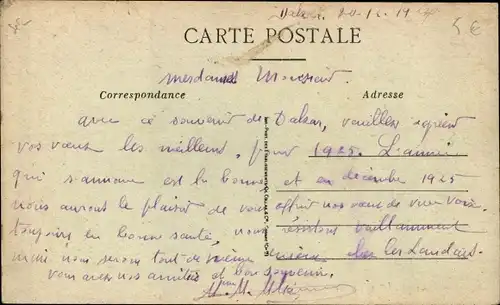 Dakar
CARTE POSTALE
5€
Mesdames Monsieur.
Correspondance
Adresse
avec ce souvenir de Dakar, veuillez agréer
vos vœux les meilleurs, pour 1925. L'année
qui s'annonce est la bonne et en décembre 1925
nous aurons le plaisir de vous offrir nos vœux de vive voix.
toujours en bonne santé, nous résistons vaillamment
mais nous serons tout de même chez les Landais.
vous avez nos amitiés et bon souvenir.